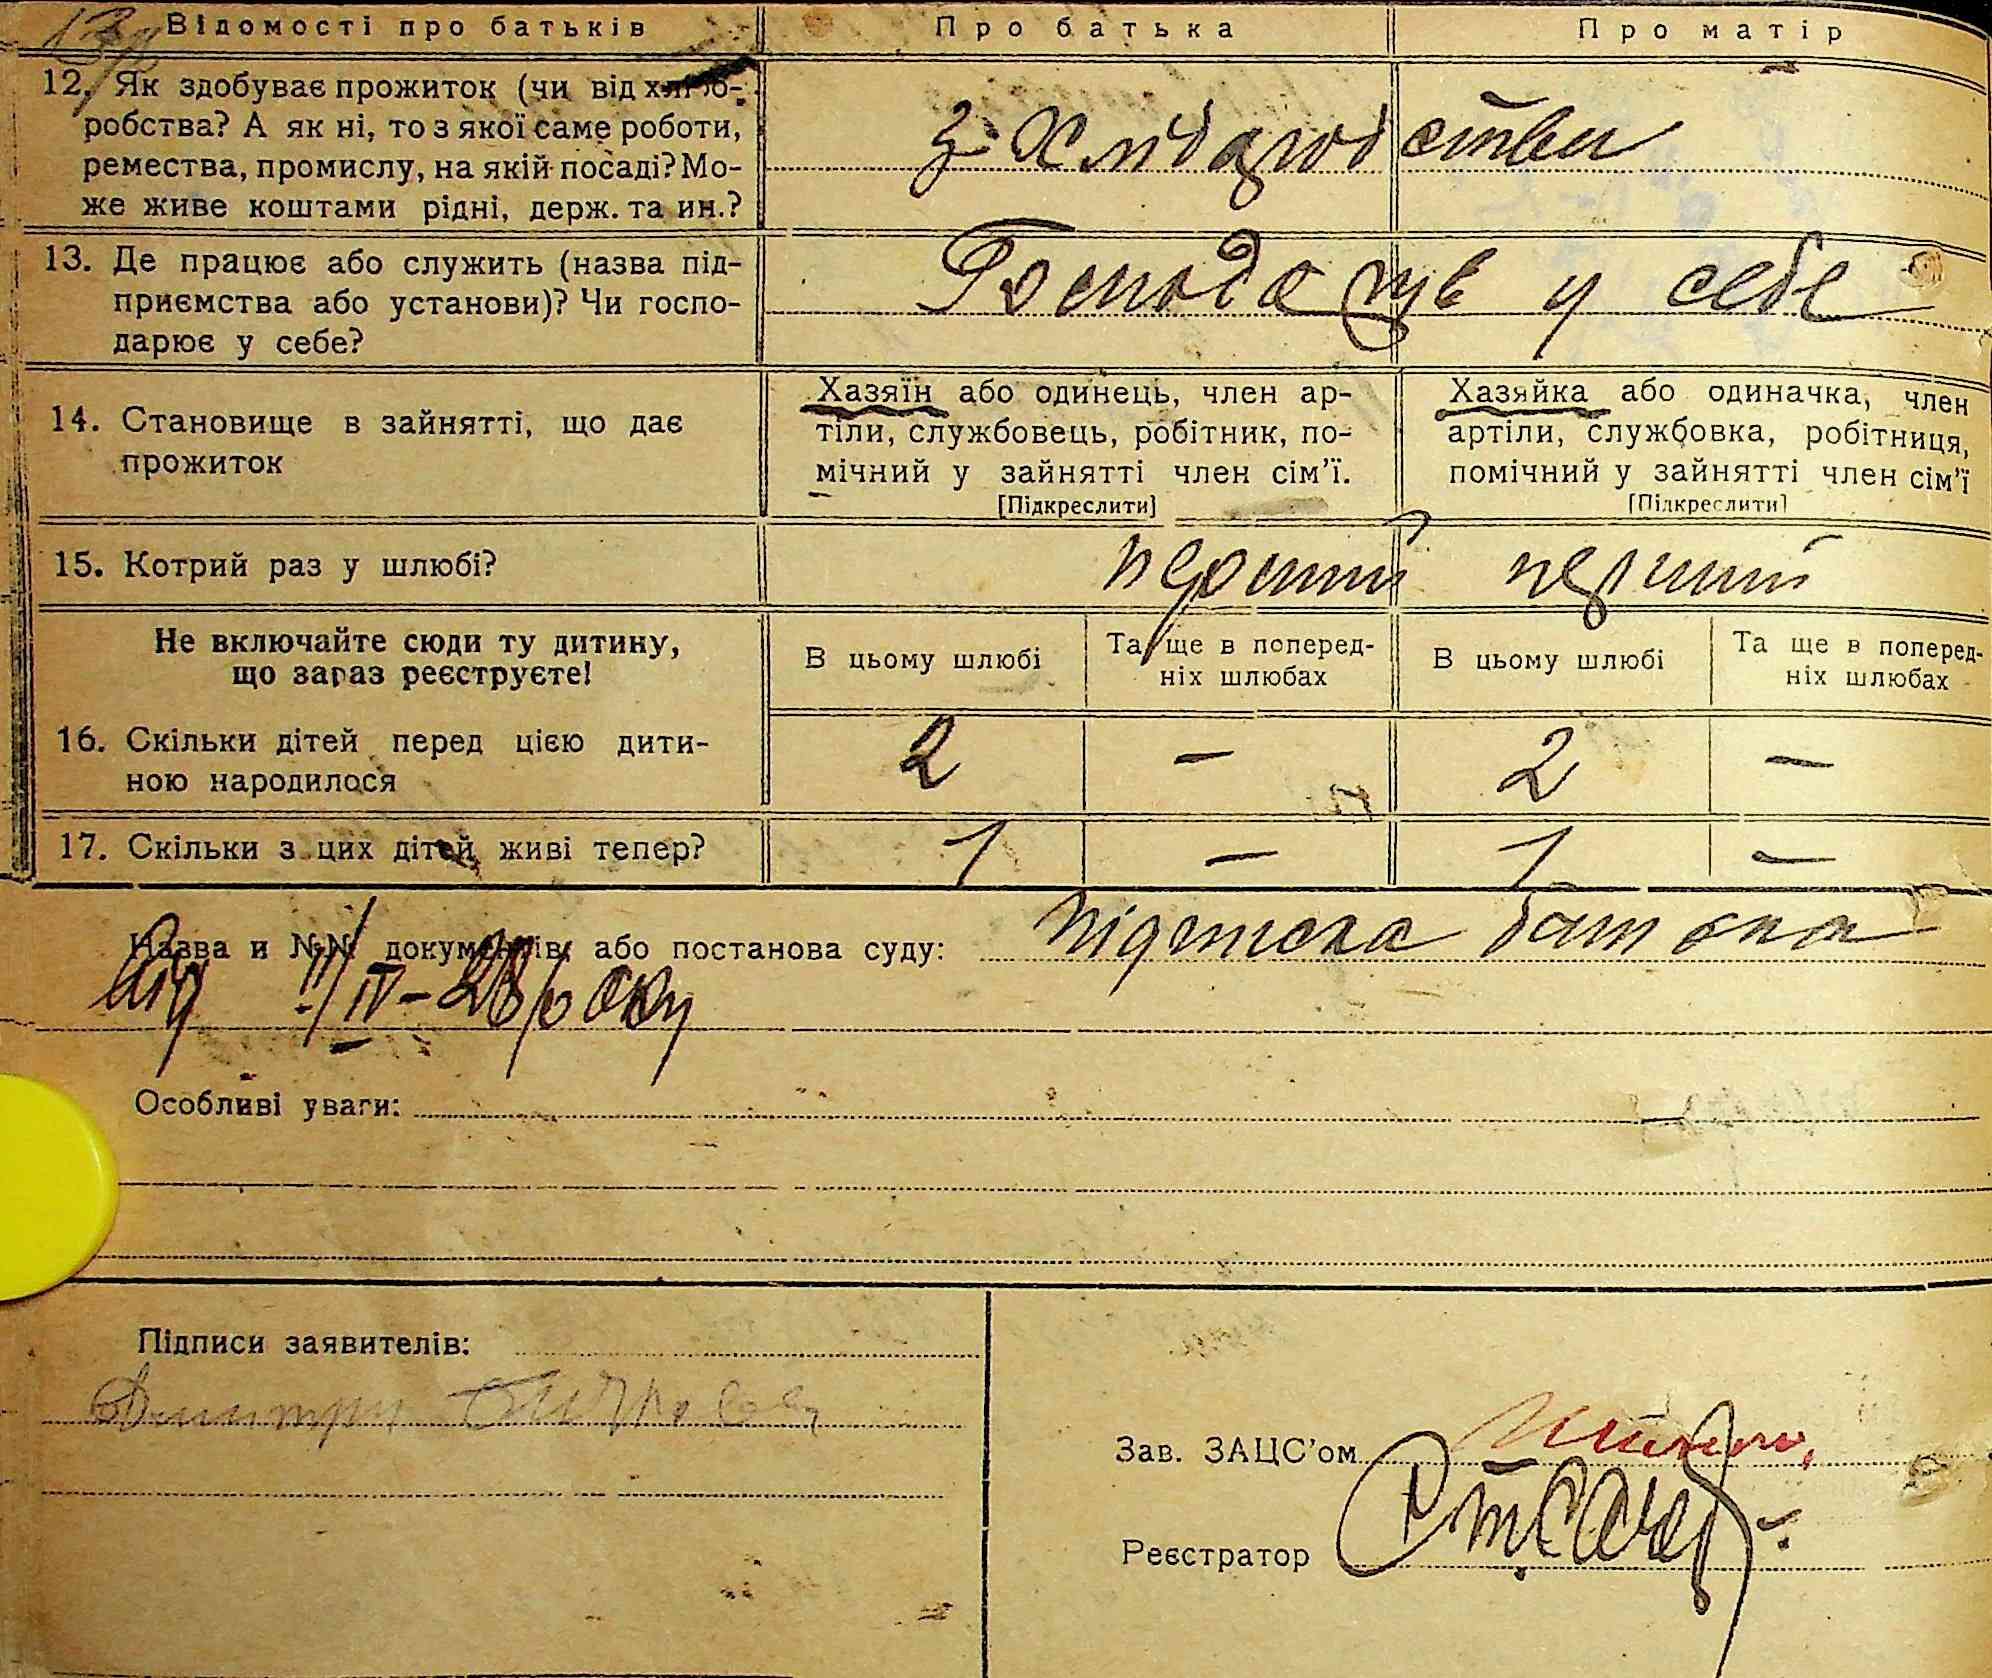 Відомості про батьків Про батька Про матір
12. Як здобуває прожиток (чи від хлібо-
робства? А як ні, то з якої саме роботи,
ремества, промислу, на якій посаді? Мо-
же живе коштами рідні, держ. та ин.?
з хлібаробства
13. Де працює або служить (назва під-
приємства або установи)? Чи госпо-
дарює у себе?
Господарує у себе
14. Становище в зайнятті, що дає
прожиток
Хазяїн або одинець, член ар-
тіли, службовець, робітник, по-
мічний у зайнятті член сім'ї.
[Підкреслити]
Хазяйка або одиначка, член
артіли, службовка, робітниця,
помічний у зайнятті член сім'ї
[Підкреслити]
15. Котрий раз у шлюбі? перший перший
Не включайте сюди ту дитину,
що зараз реєструєте!
В цьому шлюбі
Та ще в поперед-
ніх шлюбах
В цьому шлюбі
Та ще в поперед-
ніх шлюбах
16. Скільки дітей перед цією дити-
ною народилося
2 — 2 —
17. Скільки з цих дітей живі тепер? 1 — 1 —
Назва и №№ документів або постанова суду: підписка батька
від 11/IV-28 року
Особливі уваги:
Підписи заявителів:
Дмитри
Зав. ЗАЦС'ом
Реєстратор